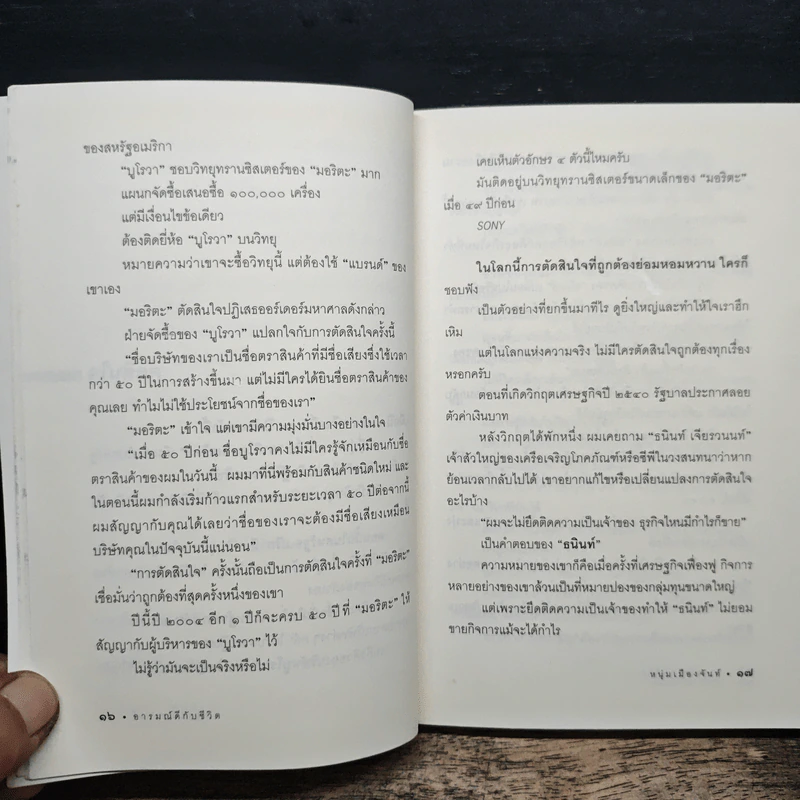 ของสหรัฐอเมริกา
“บูโรวา” ชอบวิทยุทรานซิสเตอร์ของ “มอริตะ” มาก
แผนกจัดซื้อเสนอซื้อ ๑๐๐,๐๐๐ เครื่อง
แต่มีเงื่อนไขข้อเดียว
ต้องติดยี่ห้อ “บูโรวา” บนวิทยุ
หมายความว่าเขาจะซื้อวิทยุนี้ แต่ต้องใช้ “แบรนด์” ของ
เขาเอง
“มอริตะ” ตัดสินใจปฏิเสธออร์เดอร์มหาศาลดังกล่าว
ฝ่ายจัดซื้อของ “บูโรวา” แปลกใจกับการตัดสินใจครั้งนี้
“ชื่อบริษัทของเราเป็นชื่อตราสินค้าที่มีชื่อเสียงซึ่งใช้เวลา
กว่า ๕๐ ปีในการสร้างขึ้นมา แต่ไม่มีใครได้ยินชื่อตราสินค้าของ
คุณเลย ทำไมไม่ใช้ประโยชน์จากชื่อของเรา”
“มอริตะ” เข้าใจ แต่เขามีความมุ่งมั่นบางอย่างในใจ
“เมื่อ ๕๐ ปีก่อน ชื่อบูโรวาคงไม่มีใครรู้จักเหมือนกับชื่อ
ตราสินค้าของผมในวันนี้ ผมมาที่นี่พร้อมกับสินค้าชนิดใหม่ และ
ในตอนนี้ผมกำลังเริ่มก้าวแรกสำหรับระยะเวลา ๕๐ ปีต่อจากนี้
ผมสัญญากับคุณได้เลยว่าชื่อของเราจะต้องมีชื่อเสียงเหมือน
บริษัทคุณในปัจจุบันนี้แน่นอน”
“การตัดสินใจ” ครั้งนั้นถือเป็นการตัดสินใจครั้งที่ “มอริตะ”
เชื่อมั่นว่าถูกต้องที่สุดครั้งหนึ่งของเขา
ปีนี้ปี ๒๐๐๔ อีก ๑ ปีก็จะครบ ๕๐ ปีที่ “มอริตะ” ให้
สัญญากับผู้บริหารของ “บูโรวา” ไว้
ไม่รู้ว่ามันจะเป็นจริงหรือไม่
๑๖ • อารมณ์ดีกับชีวิต
เคยเห็นตัวอักษร ๔ ตัวนี้ไหมครับ
มันติดอยู่บนวิทยุทรานซิสเตอร์ขนาดเล็กของ “มอริตะ”
เมื่อ ๔๙ ปีก่อน
SONY
ในโลกนี้การตัดสินใจที่ถูกต้องย่อมหอมหวาน ใครก็
ชอบฟัง
เป็นตัวอย่างที่ยกขึ้นมาทีไร ดูยิ่งใหญ่และทำให้ใจเราฮึก
เหิม
แต่ในโลกแห่งความจริง ไม่มีใครตัดสินใจถูกต้องทุกเรื่อง
หรอกครับ
ตอนที่เกิดวิกฤตเศรษฐกิจปี ๒๕๔๐ รัฐบาลประกาศลอย
ตัวค่าเงินบาท
หลังวิกฤตได้พักหนึ่ง ผมเคยถาม “ธนินท์ เจียรวนนท์”
เจ้าสัวใหญ่ของเครือเจริญโภคภัณฑ์หรือซีพีในวงสนทนาว่าหาก
ย้อนเวลากลับไปได้ เขาอยากแก้ไขหรือเปลี่ยนแปลงการตัดสินใจ
อะไรบ้าง
“ผมจะไม่ยึดติดความเป็นเจ้าของ ธุรกิจไหนมีกำไรก็ขาย”
เป็นคำตอบของ “ธนินท์”
ความหมายของเขาก็คือเมื่อครั้งที่เศรษฐกิจเฟื่องฟู กิจการ
หลายอย่างของเขาล้วนเป็นที่หมายปองของกลุ่มทุนขนาดใหญ่
แต่เพราะยึดติดความเป็นเจ้าของทำให้ “ธนินท์” ไม่ยอม
ขายกิจการแม้จะได้กำไร
หนุ่มเมืองจันท์ • ๑๗